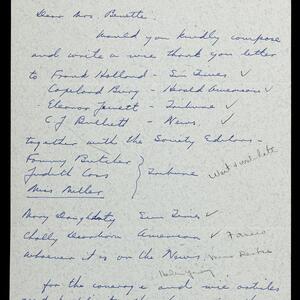 Dear Mrs. Benette:
Would you kindly compose
and write a nice thank you letter
to Frank Holland - Sun Times ✓
Copeland Burg - Herald American ✓
Eleanor Jewett - Tribune ✓
C J Bulliett - News. ✓
together with the Society Editors-
Fanny Butcher
Judith Cass } Tribune
Miss Miller
Mary Daughety Sun Times ✓
Cholly Dearborn American ✓
whoever it is on the News.
for the coverage and nice articles